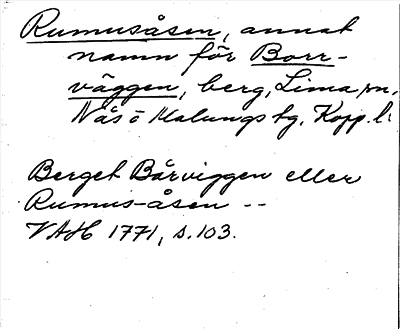 Rumusåsen, annat
namn för Borr-
väggen, berg, Lima sn,
Nås o Malungs tg, Kopp. l.
Berget Bårviggen eller
Rumus-åsen --
VAH 1771, s. 103.